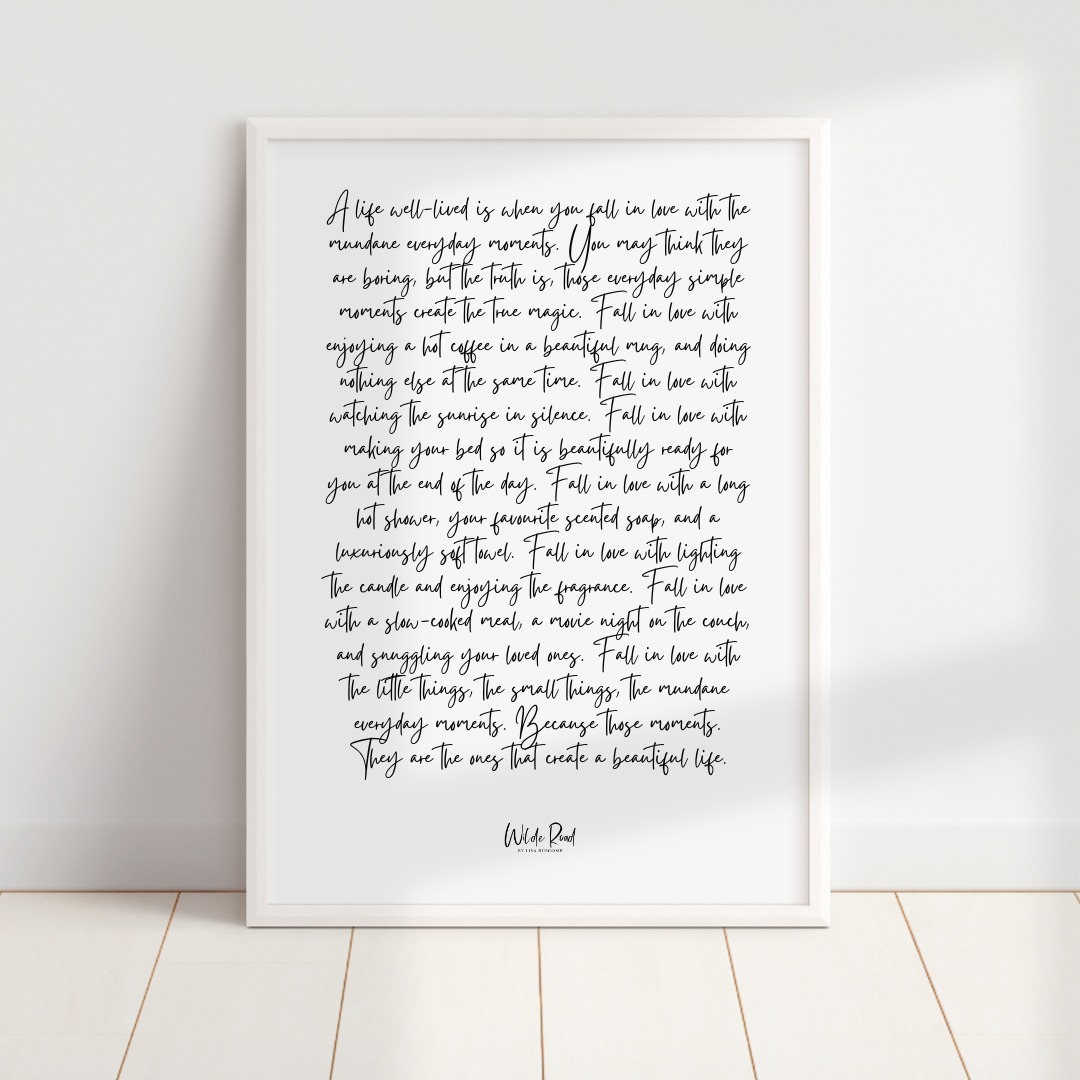 A life well-lived is when you fall in love with the
mundane everyday moments. You may think they
are boring, but the truth is, those everyday simple
moments create the true magic. Fall in love with
enjoying a hot coffee in a beautiful mug, and doing
nothing else at the same time. Fall in love with
watching the sunrise in silence. Fall in love with
making your bed so it is beautifully ready for
you at the end of the day. Fall in love with a long
hot shower, your favourite scented soap, and a
luxuriously soft towel. Fall in love with lighting
the candle and enjoying the fragrance. Fall in love
with a slow-cooked meal, a movie night on the couch,
and snuggling your loved ones. Fall in love with
the little things, the small things, the mundane
everyday moments. Because those moments.
They are the ones that create a beautiful life.
Wilde Road
BY LISA BUSCOMB